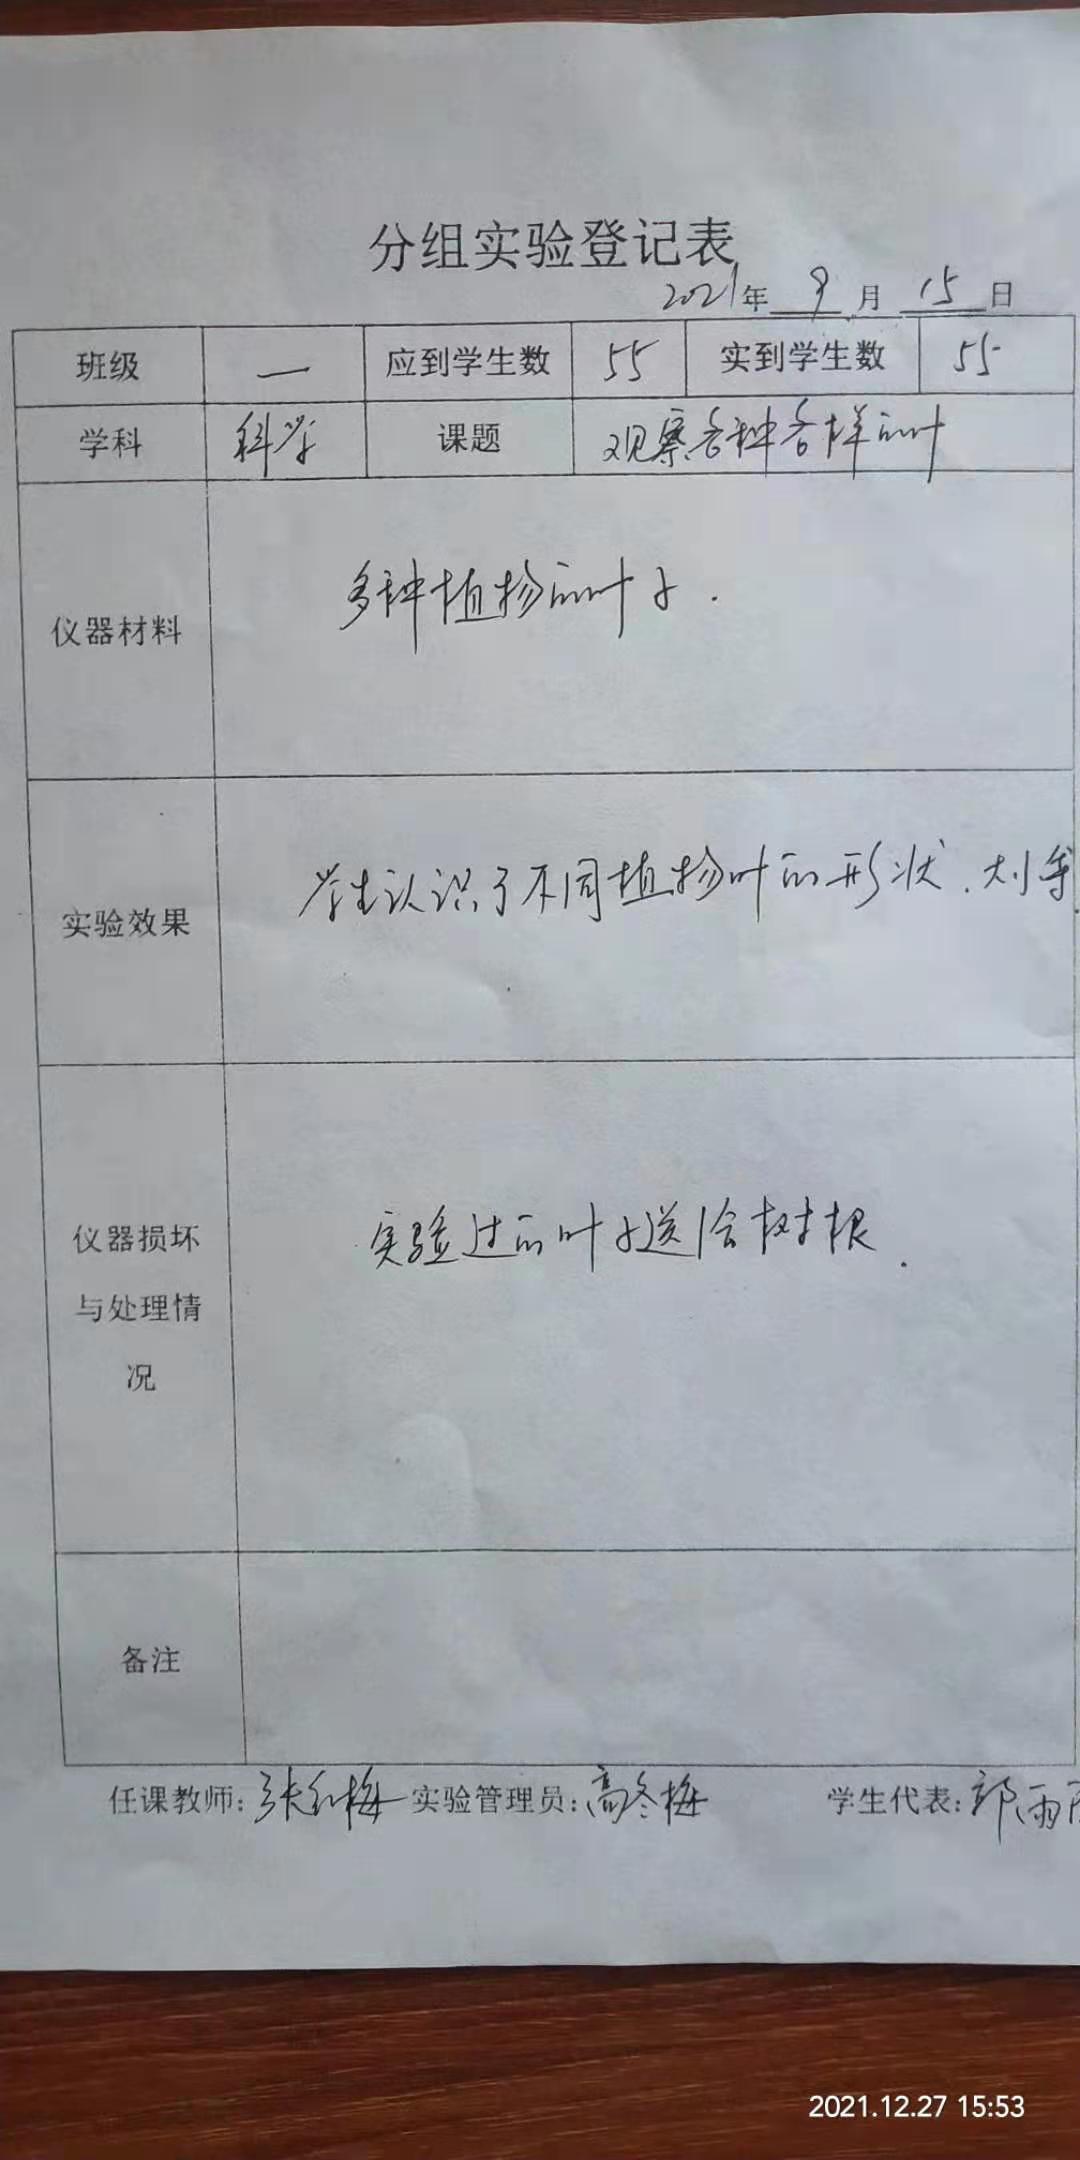 分组实验登记表
2021年 9 月 15 日
班级 一 应到学生数 55 实到学生数 55
学科 科学 课题 观察各种各样的叶
仪器材料 多种植物的叶子.
实验效果 学生认识了不同植物叶的形状、大小等.
仪器损坏
与处理情
况
实验过的叶子送给树根.
备注
任课教师: 张红梅 实验管理员: 高冬梅 学生代表: 郭雨
2021.12.27 15:53